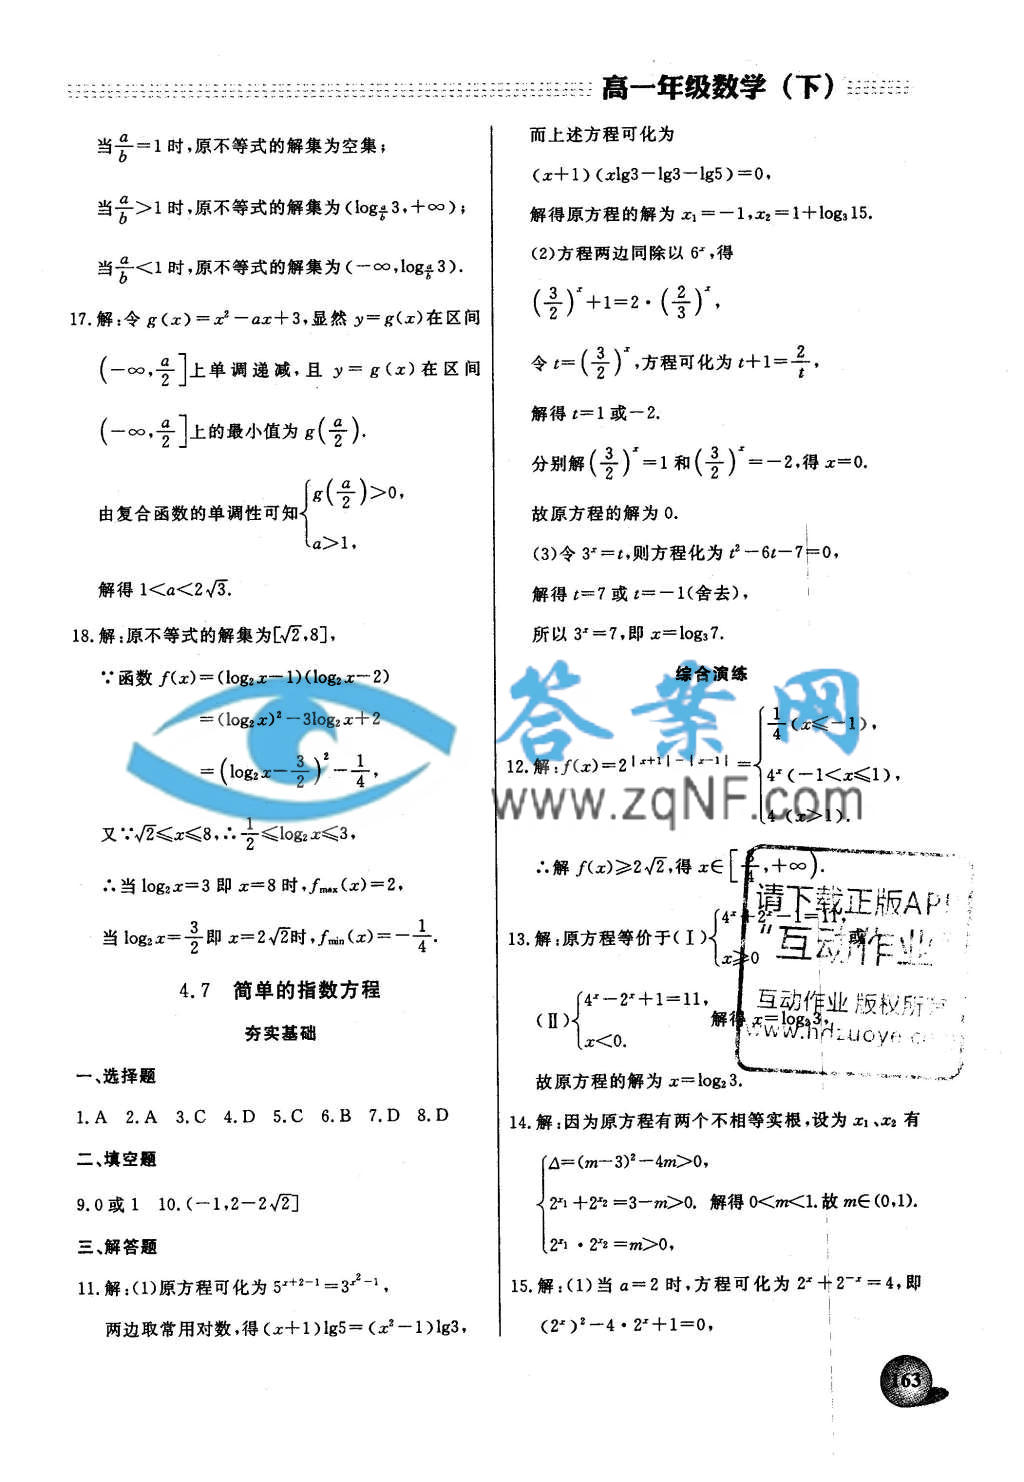 高一年级数学(下)
当a/b=1时,原不等式的解集为空集;
当a/b>1时,原不等式的解集为(log_{a/b}3,+∞);
当a/b<1时,原不等式的解集为(-∞,log_{a/b}3).
17.解:令g(x)=x²-ax+3,显然y=g(x)在区间
(-∞,a/2]上单调递减,且y=g(x)在区间
(-∞,a/2]上的最小值为g(a/2).
由复合函数的单调性可知{g(a/2)>0,
a>1,
解得1<a<2√3.
18.解:原不等式的解集为[√2,8],
∵函数f(x)=(log₂x-1)(log₂x-2)
=(log₂x)²-3log₂x+2
=(log₂x-3/2)²-1/4,
又∵√2≤x≤8,∴1/2≤log₂x≤3,
∴当log₂x=3即x=8时,f_max(x)=2,
当log₂x=3/2即x=2√2时,f_min(x)=-1/4.
4.7 简单的指数方程
夯实基础
一、选择题
1.A 2.A 3.C 4.D 5.C 6.B 7.D 8.D
二、填空题
9.0或1 10.(-1,2-2√2]
三、解答题
11.解:(1)原方程可化为5^{x+2-1}=3^{x²-1},
两边取常用对数,得(x+1)lg5=(x²-1)lg3,
而上述方程可化为
(x+1)(xlg3-lg3-lg5)=0,
解得原方程的解为x₁=-1,x₂=1+log₃15.
(2)方程两边同除以6^x,得
(3/2)^x+1=2·(2/3)^x,
令t=(3/2)^x,方程可化为t+1=2/t,
解得t=1或-2.
分别解(3/2)^x=1和(3/2)^x=-2,得x=0.
故原方程的解为0.
(3)令3^x=t,则方程化为t²-6t-7=0,
解得t=7或t=-1(舍去),
所以3^x=7,即x=log₃7.
综合演练
12.解:f(x)=2^{|x+1|-|x-1|}={1/4(x≤-1),
4^x(-1<x≤1),
4(x>1).
∴解f(x)≥2√2,得x∈[3/4,+∞).
13.解:原方程等价于(Ⅰ){4^x+2^x-1=11,或
x≥0
(Ⅱ){4^x-2^x+1=11, 解得x=log₂3,
x<0.
故原方程的解为x=log₂3.
14.解:因为原方程有两个不相等实根,设为x₁、x₂有
{Δ=(m-3)²-4m>0,
2^{x₁}+2^{x₂}=3-m>0. 解得0<m<1.故m∈(0,1).
2^{x₁}·2^{x₂}=m>0,
15.解:(1)当a=2时,方程可化为2^x+2^{-x}=4,即
(2^x)²-4·2^x+1=0,
163
答案网
www.zqNF.com
请下载正版AP
"互动作业"
互动作业 版权所
www.hdzuoye.c